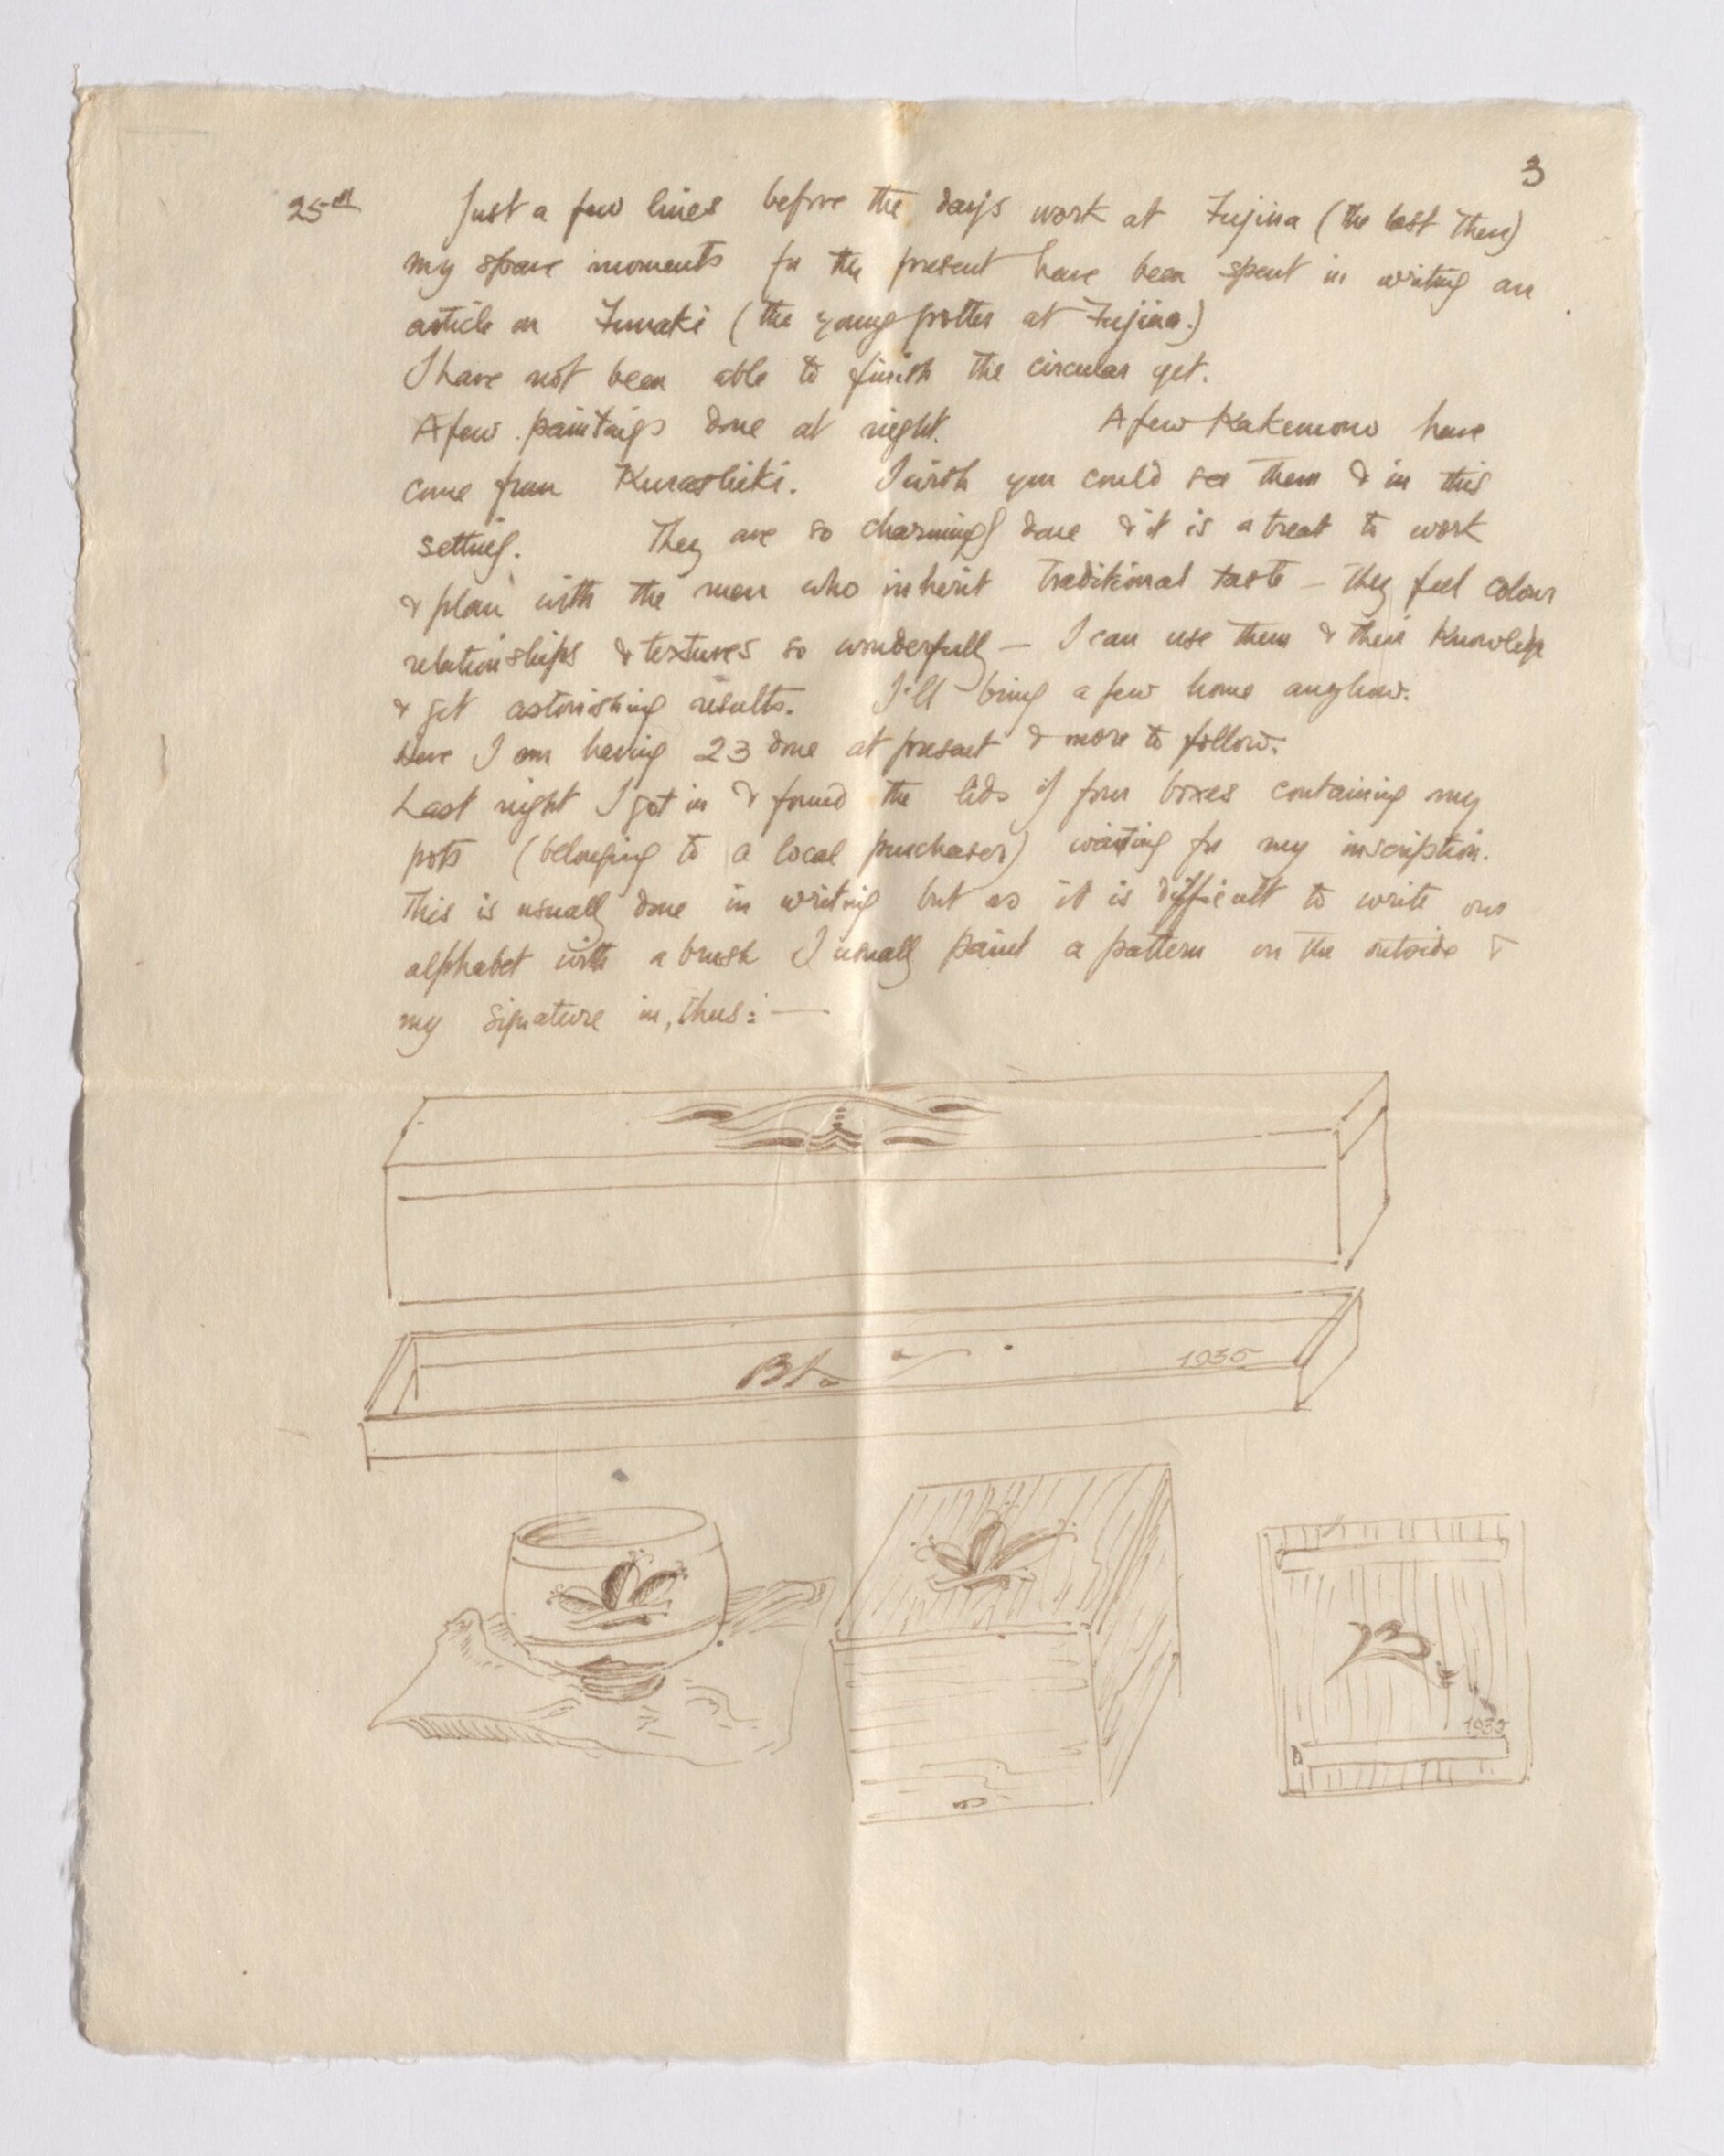 3
25th Just a few lines before the days work at Fujina (the last there)
my spare moments for the present have been spent in writing an
article on Funaki (the young potter at Fujina.)
I have not been able to finish the circular yet.
A few paintings done at night. A few Kakemono have
come from Kurashiki. I wish you could see them & in this
setting. They are so charmingly done & it is a treat to work
& plan with the men who inherit traditional taste – they feel colour
relationships & textures so wonderfully – I can use them & their knowledge
& get astonishing results. I'll bring a few home anyhow.
Here I am having 23 done at present & more to follow.
Last night I got in & found the lids of four boxes containing my
pots (belonging to a local purchaser) waiting for my inscription.
This is usually done in writing but as it is difficult to write our
alphabet with a brush I usually paint a pattern on the outside &
my signature in, thus: —
1935
1935